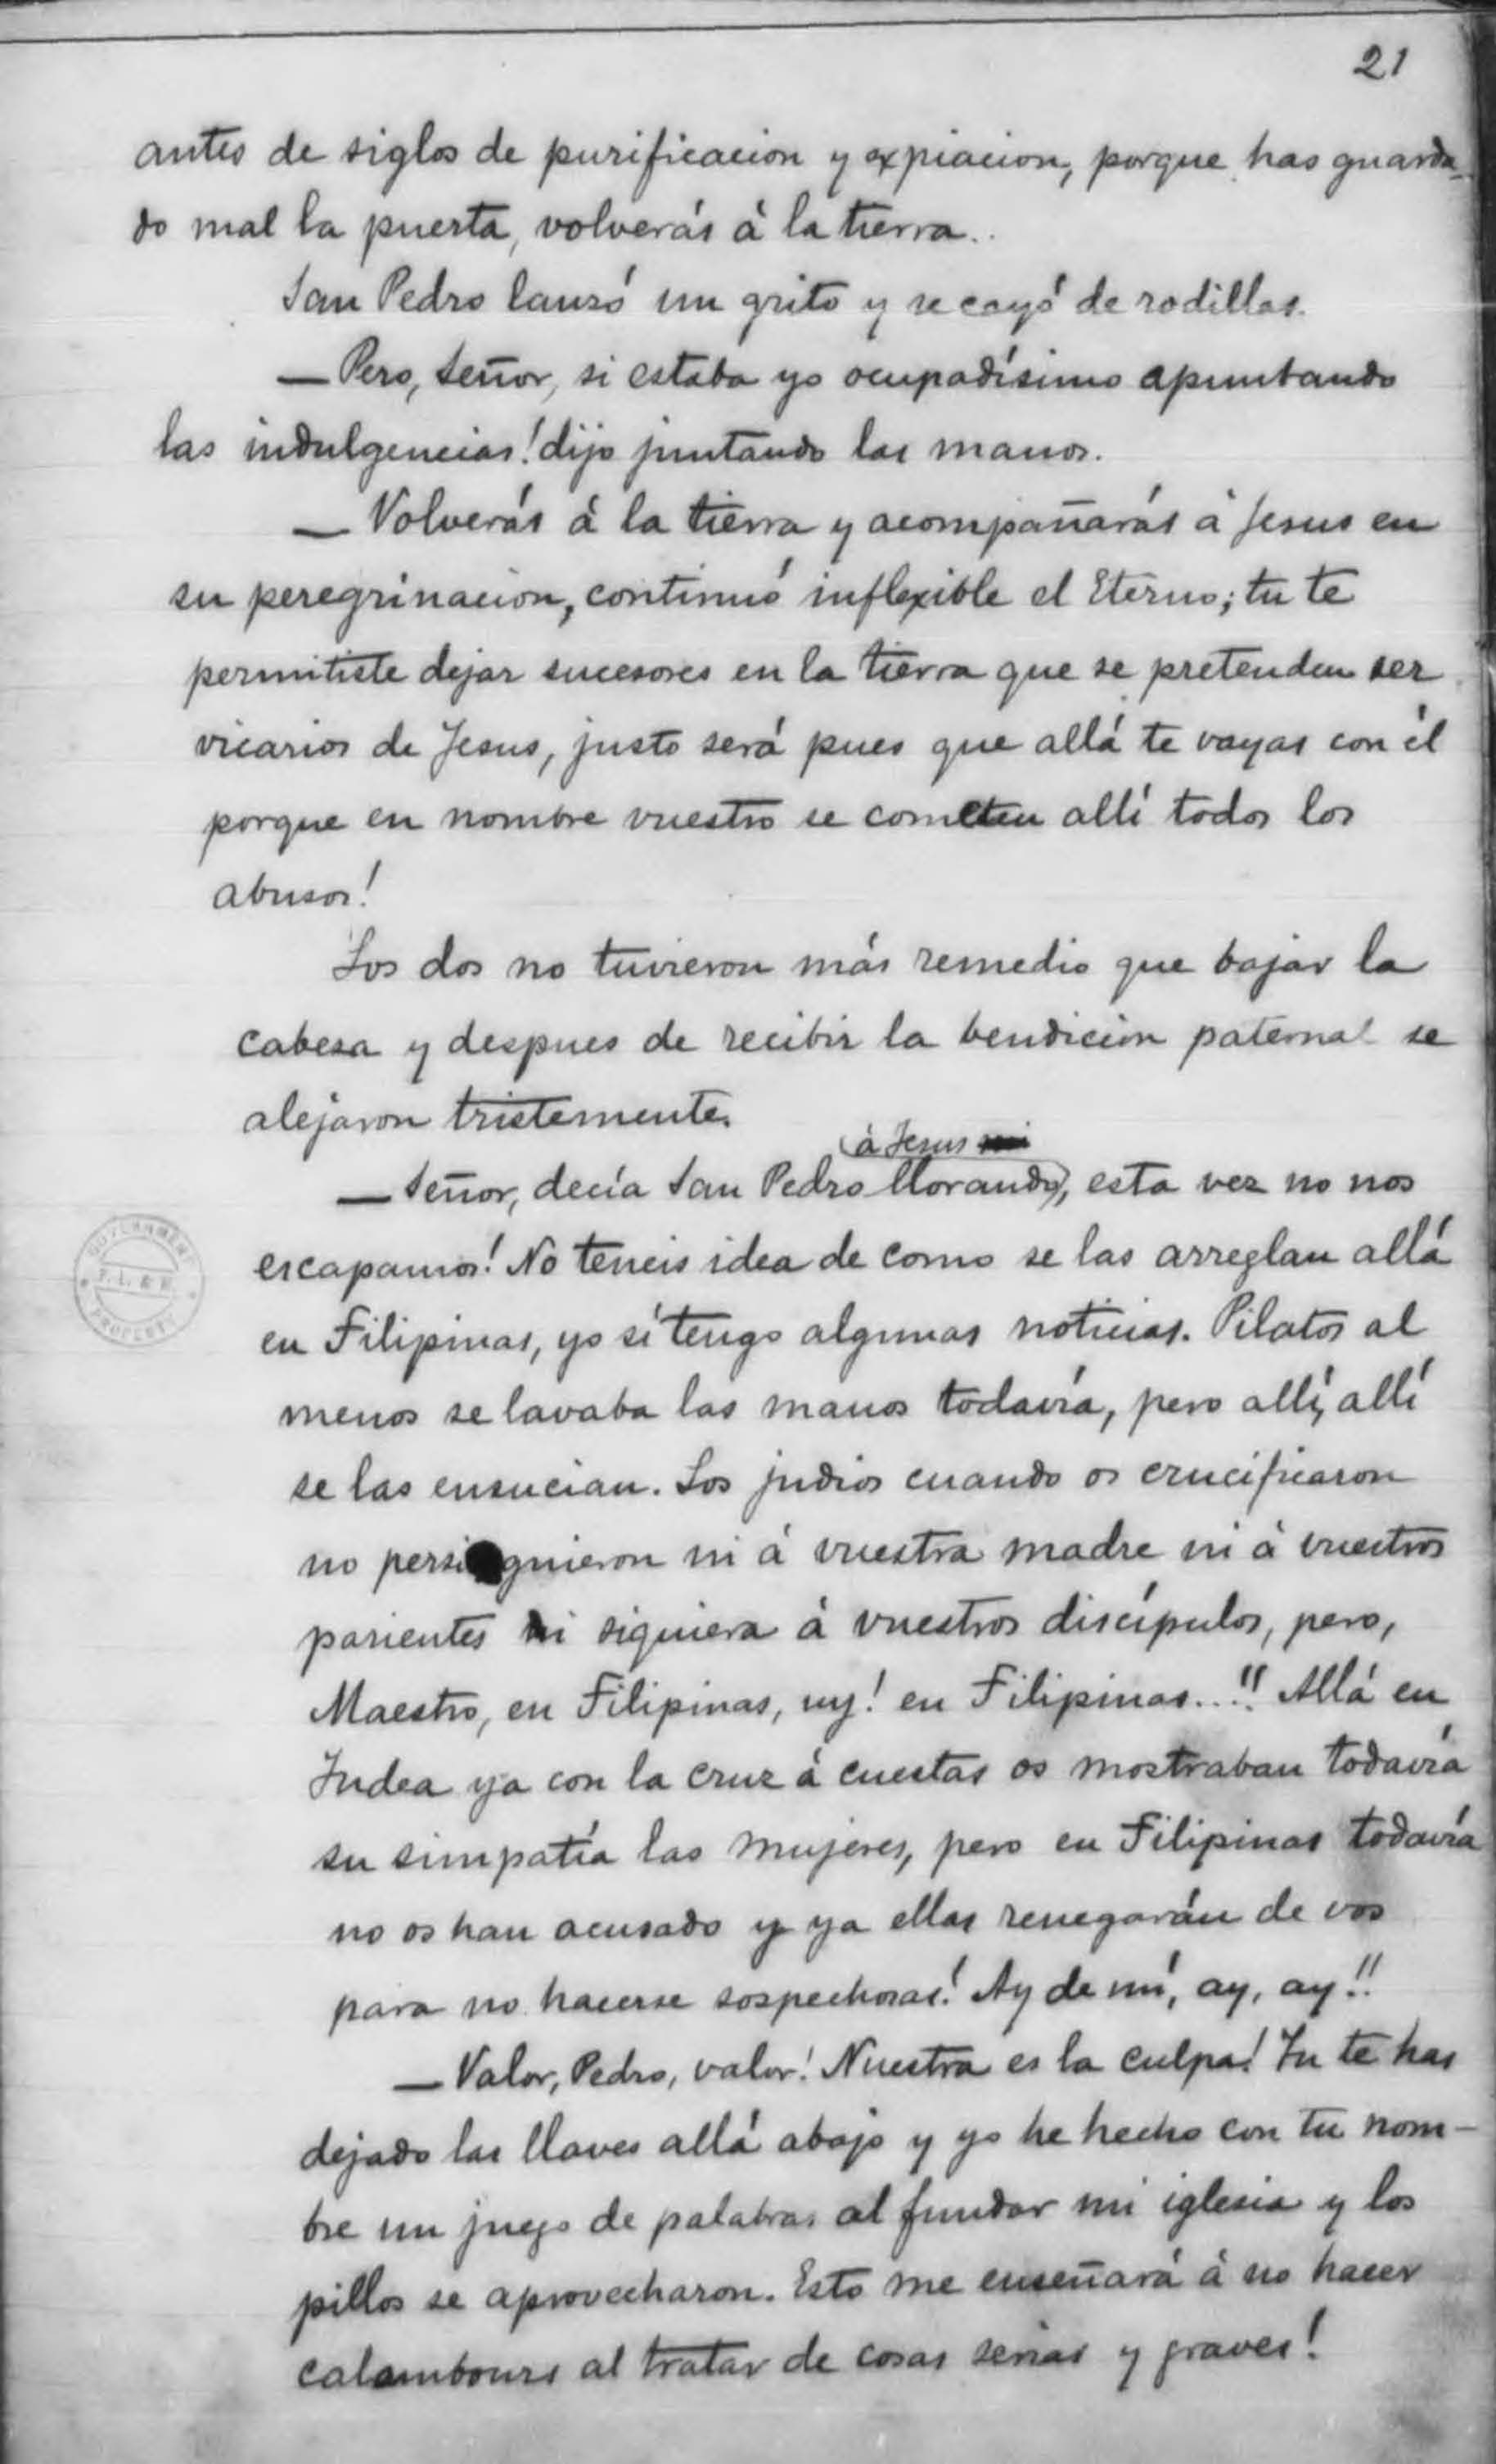 21
antes de siglos de purificacion y expiacion, porque has guarda-
do mal la puerta, volverás á la tierra..
San Pedro lanzó un grito y se cayó de rodillas.
— Pero, Señor, si estaba yo ocupadísimo apuntando
las indulgencias! dijo juntando las manos.
— Volverás á la tierra y acompañarás á Jesus en
su peregrinacion, continuó inflexible el Eterno; tu te
permitiste dejar sucesores en la tierra que se pretenden ser
vicarios de Jesus, justo será pues que allá te vayas con él
porque en nombre vuestro se cometen allí todos los
abusos!
Los dos no tuvieron más remedio que bajar la
cabeza y despues de recibir la bendicion paternal se
alejaron tristemente.
á Jesus
— Señor, decía San Pedro llorando, esta vez no nos
escapamos! No teneis idea de como se las arreglan allá
en Filipinas, yo sí tengo algunas noticias. Pilatos al
menos se lavaba las manos todavía, pero allí, allí
se las ensucian. Los judios cuando os crucificaron
no persiguieron ni á vuestra madre ni á vuestros
parientes ni siquiera á vuestros discípulos, pero,
Maestro, en Filipinas, uy! en Filipinas...!! Allá en
Judea ya con la cruz á cuestas os mostraban todavía
su simpatía las mujeres, pero en Filipinas todavía
no os han acusado y ya ellas renegarán de vos
para no hacerse sospechosas! Ay de mí, ay, ay!!
— Valor, Pedro, valor! Nuestra es la culpa! Tu te has
dejado las llaves allá abajo y yo he hecho con tu nom-
bre un juego de palabras al fundar mi iglesia y los
pillos se aprovecharon. Esto me enseñará á no hacer
calambours al tratar de cosas serias y graves!
GOVERNMENT
P. L. & M.
PROPERTY